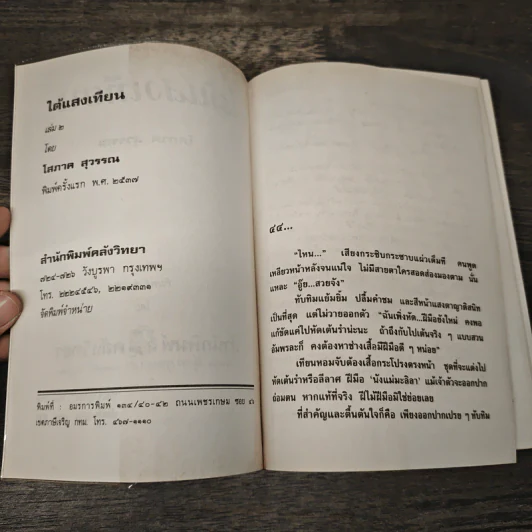 ใต้แสงเทียน
เล่ม ๒
โดย
โสภาค สุวรรณ
พิมพ์ครั้งแรก พ.ศ. ๒๕๓๗
สำนักพิมพ์คลังวิทยา
๗๒๔-๗๒๖ วังบูรพา กรุงเทพฯ
โทร. ๒๒๒๔๕๔๖, ๒๒๑๙๓๓๑
จัดพิมพ์จำหน่าย
พิมพ์ที่ : อมรการพิมพ์ ๑๓๔/๔๐-๔๒ ถนนเพชรเกษม ซอย
เขตภาษีเจริญ กทม. โทร. ๔๖๗-๑๑๑๐
๔๔...
"ไหน..." เสียงกระซิบกระซาบแผ่วเต็มที คนพูด
เหลียวหน้าหลังจนแน่ใจ ไม่มีสายตาใครสอดส่องมองตาม นั้น
แหละ "อุ๊ย...สวยจัง"
ทับทิมแย้มยิ้ม ปลื้มคำชม และสีหน้าแสดงตาญาติสนิท
เป็นที่สุด แต่ไม่วายออกตัว "ฉันเพิ่งหัด...ฝีมือยังใหม่ คงพอ
แก้ขัดแค่ไปหัดเต้นรำน่ะนะ ถ้าถึงกับไปเต้นจริง ๆ แบบสวน
อัมพรละก็ คงต้องหาช่างเสื้อมีฝีมือดี ๆ หน่อย"
เทียนหอมจับต้องเสื้อกระโปรงตรงหน้า ชุดที่จะแต่งไป
หัดเต้นรำหรือลีลาศ ฝีมือ 'นังแม่มะลิลา' แม้เจ้าตัวจะออกปาก
ถ่อมตน หากแท้ที่จริง ฝีไม้ฝีมือมิใช่ย่อยเลย
ที่สำคัญและตื้นตันใจก็คือ เพียงออกปากเปรย ๆ ทับทิม